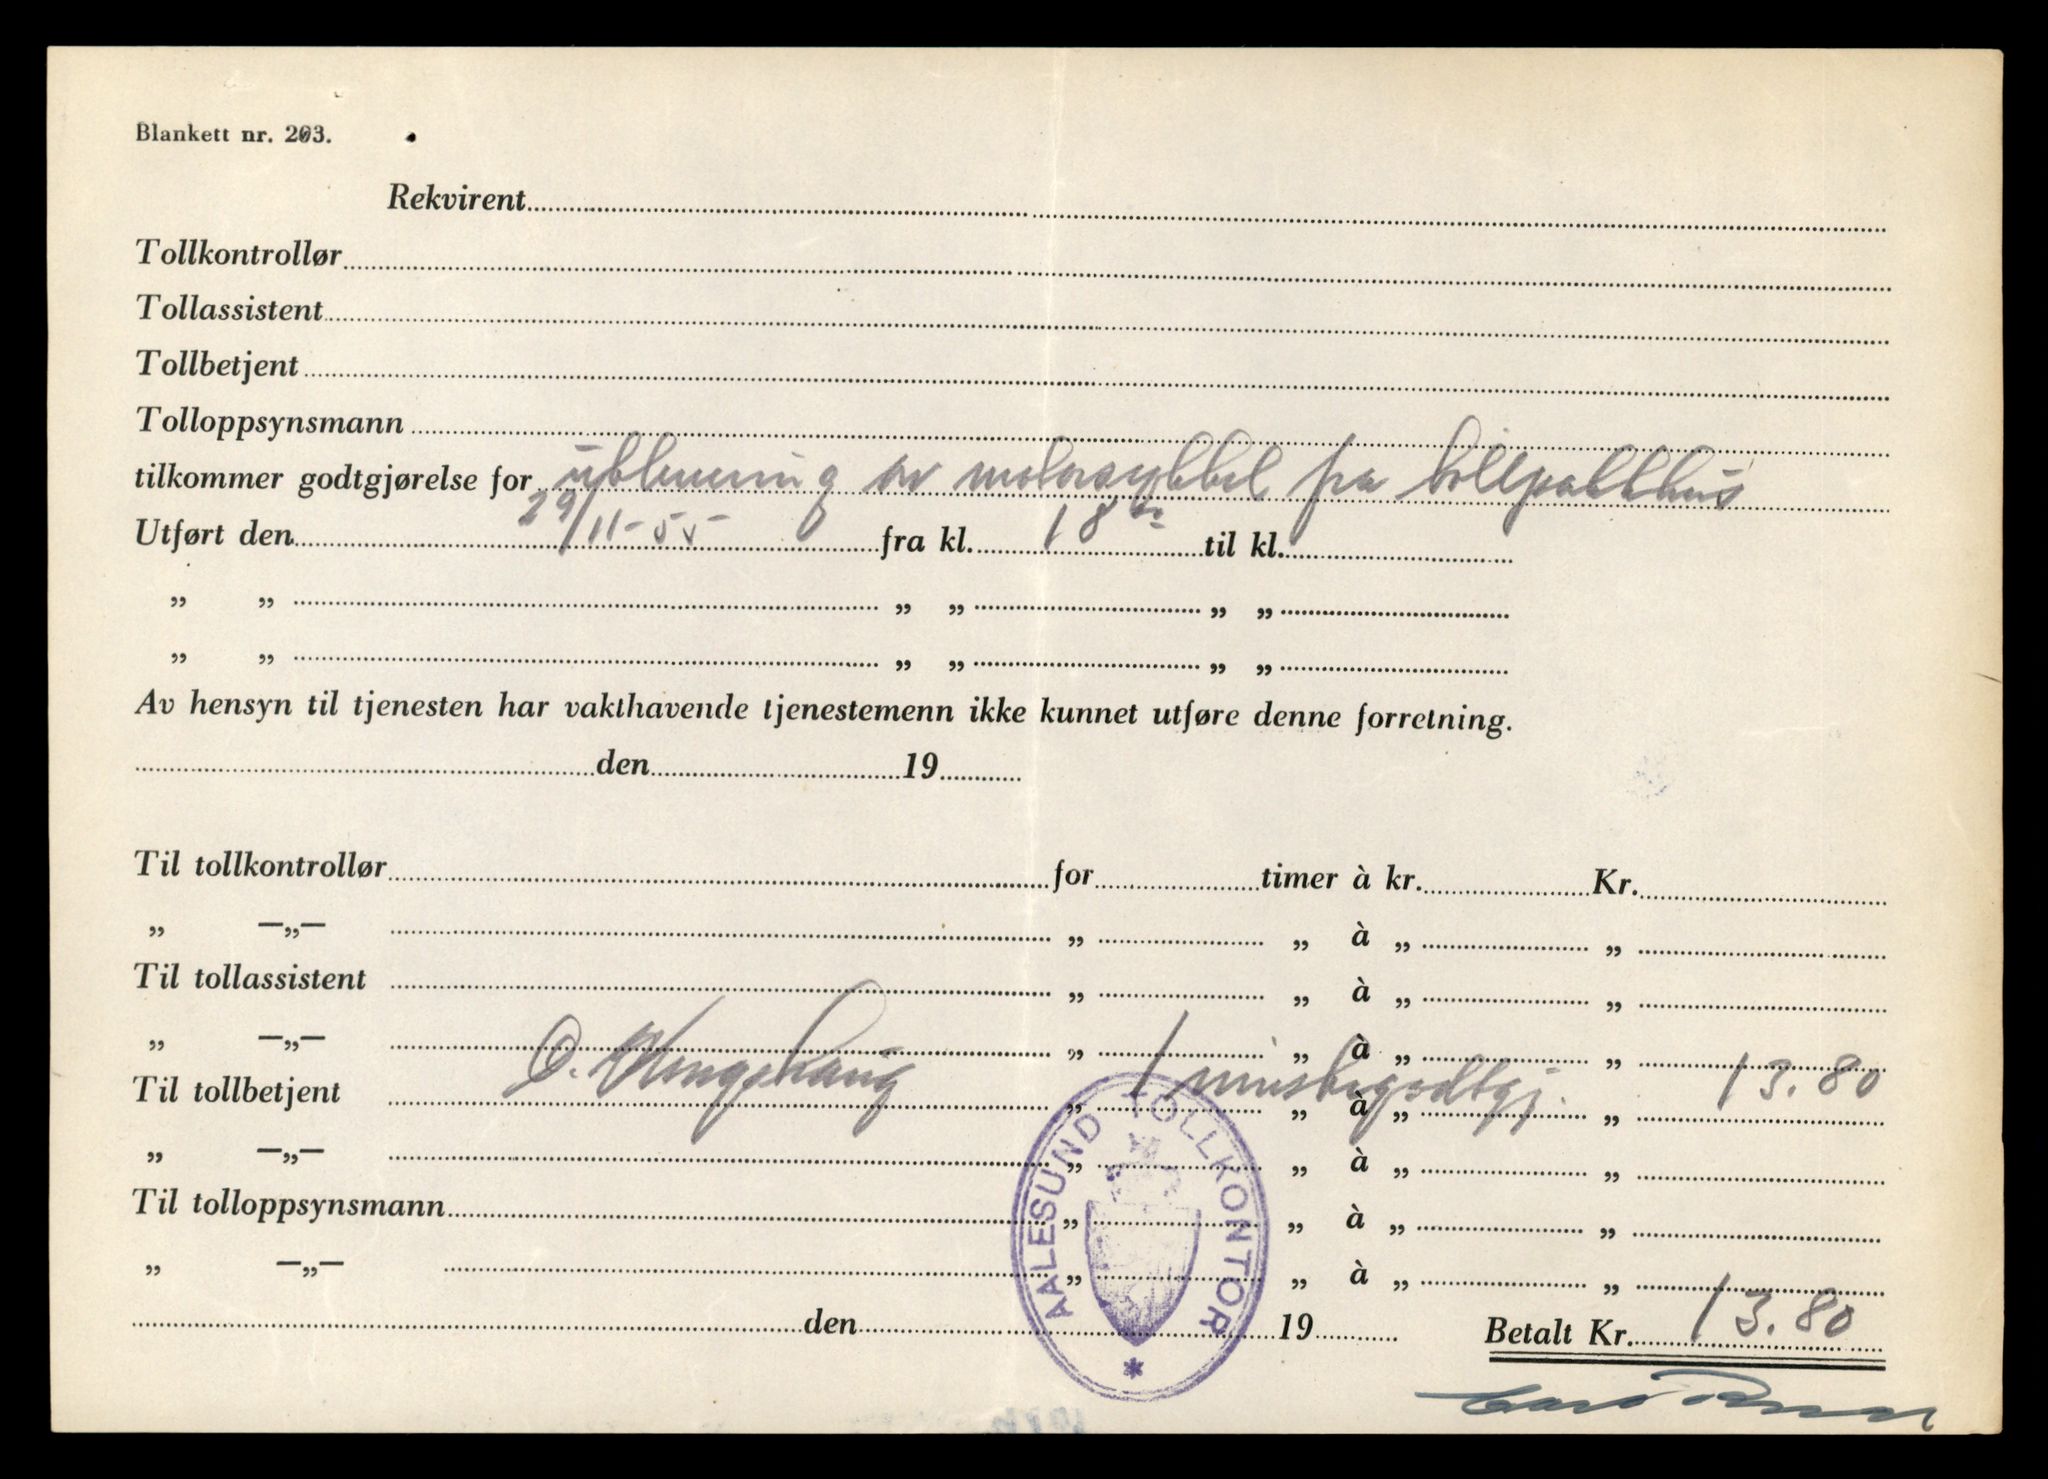 Blankett nr. 203.
Rekvirent
Tollkontrollør
Tollassistent
Tollbetjent
Tolloppsynsmann
tilkommer godtgjørelse for utlevering av motorsykkel fra tollpakkhus
Utført den 29/11-55 fra kl. 18 til kl.
„ „ „ „ „ „
„ „ „ „ „ „
Av hensyn til tjenesten har vakthavende tjenestemenn ikke kunnet utføre denne forretning.
den 19
Til tollkontrollør for timer à kr. Kr.
„ —„— „ „ à „ „
Til tollassistent „ „ à „ „
„ —„— „ „ à „ „
Til tollbetjent O. „ 1 minstegodtgj. „ à „ „ 13.80
„ —„— „ „ à „ „
Til tolloppsynsmann „ „ à „ „
„ —„— „ „ à „ „
den 19 Betalt Kr. 13.80
AALESUND TOLLKONTOR